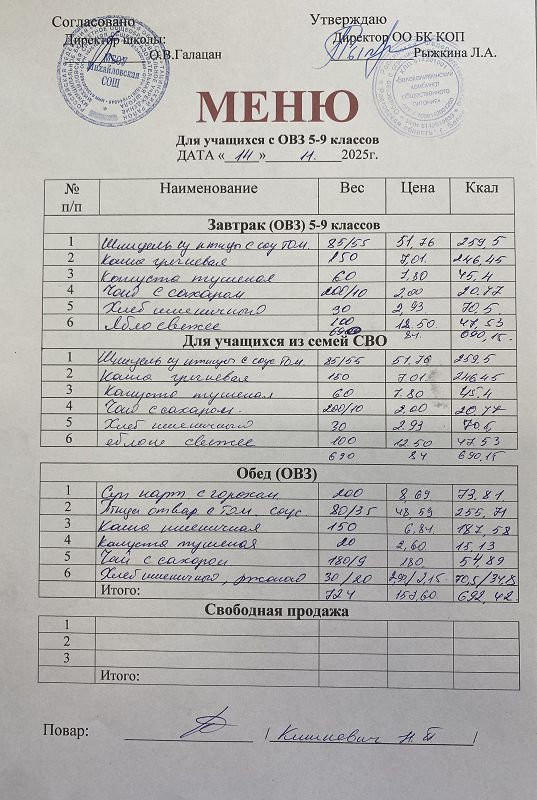 Согласовано Утверждаю
Директор школы: Директор ОО БК КОП
О.В.Галацан Рыжкина Л.А.
МБОУ Михайловская СОШ
Белокалитвинский комбинат общественного питания
МЕНЮ
Для учащихся с ОВЗ 5-9 классов
ДАТА «14» 11. 2025г.
№ п/п Наименование Вес Цена Ккал
Завтрак (ОВЗ) 5-9 классов
1 Шницель из птицы с соус Том. 85/55 51,76 259,5
2 Каша гречневая 150 7,01 246,45
3 Капуста тушеная 60 7,80 45,4
4 Чай с сахаром 200/10 2,00 20,77
5 Хлеб пшеничный 30 2,93 70,5
6 Ябло свежее 100 12.50 47,53
690 84 690,15.
Для учащихся из семей СВО
1 Шницель из птицы с соус Том. 85/55 51.76 259.5
2 Каша гречневая 150 7.01 246.45
3 Капуста тушеная 60 7.80 45.4
4 Чай с сахаром. 200/10 2.00 20.77
5 Хлеб пшеничный 30 2.93 70.5
6 яблоко свежее 100 12.50 47.53
690 84 690,15
Обед (ОВЗ)
1 Суп карт с горохом 200 8,69 73.81
2 Птица отвар с Том. соус 80/35 48.59 255,71
3 Каша пшеничная 150 6,84 187,58
4 Капуста тушеная 20 2,60 15,13
5 Чай с сахаром 180/9 1,80 54,89
6 Хлеб пшеничный, ржаной 30/20 2,93/2,15. 70,5/34,8
Итого: 724 692,42.
Свободная продажа
1
2
3
Итого:
Повар: / Кишневич Н.П /